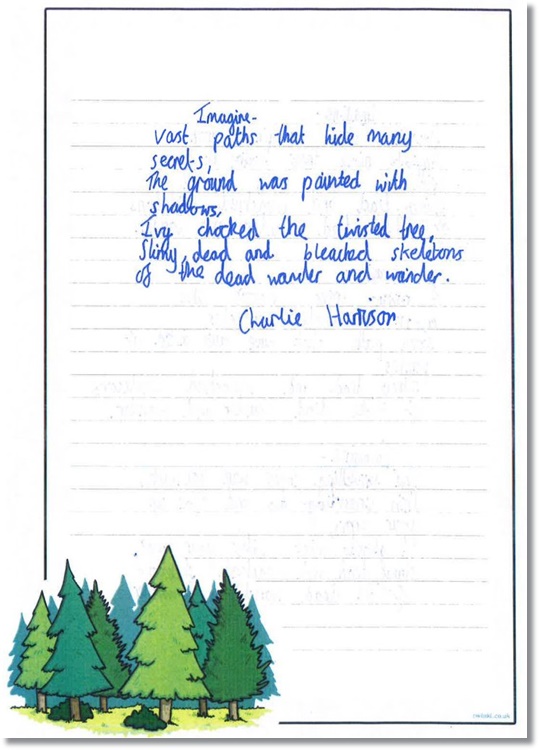 Imagine-
vast paths that hide many
secrets,
The ground was painted with
shadows,
Ivy chocked the twisted tree,
Slimy, dead and bleached skeletons
of the dead wander and winder.
Charlie Harrison